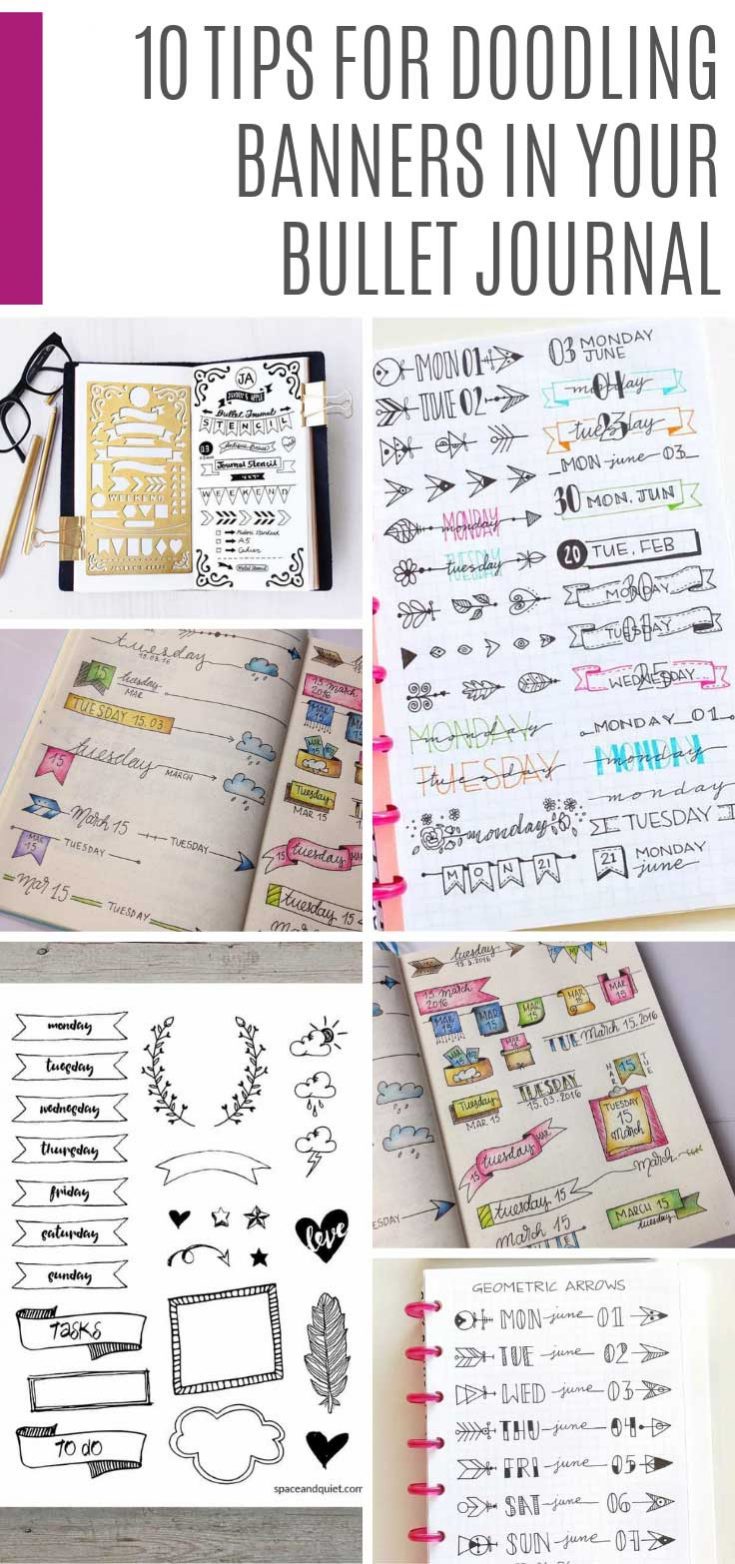 10 TIPS FOR DOODLING
BANNERS IN YOUR
BULLET JOURNAL
JA
Bullet Journal
STENCIL
Journal Stencil
WEEKEND
WEEKEND
A5
MON 01
JUNE 02
MONDAY
monday
TUESDAY
tuesday
MONDAY
monday
TUESDAY
tuesday
monday
MON 21
03 MONDAY
JUNE
monday
tuesday
MON june 03
30 MON. JUN
20 TUE, FEB
MONDAY
TUESDAY
WEDNESDAY 25
MONDAY 01
MONDAY
monday
monday
TUESDAY
21 MONDAY
june
tuesday
15.03.16
15 tuesday
MAR
TUESDAY 15.03
15 tuesday
MARCH
March 15
TUESDAY
MAR
15
TUESDAY
mar 15
TUESDAY
15 march
2016
Tuesday
MAR 15
15 tuesday
tuesday 15
monday
tuesday
wednesday
thursday
friday
saturday
sunday
TASKS
TO DO
love
spaceandquiet.com
tuesday
15.3.2016
15 march
2016
MAR
15
MAR
15
MAR
15
MAR
15
MAR
15
TUE March 15. 2016
Tuesday
MAR 15
TUESDAY
15.03.2016
MAR 15 TUE
TUESDAY
15
March
15 tuesday MAR
march
tuesday 15
march 15
MARCH 15
tuesday
GEOMETRIC ARROWS
MON june 01
TUE june 02
WED june 03
THU june 04
FRI june 05
SAT june 06
SUN june 07